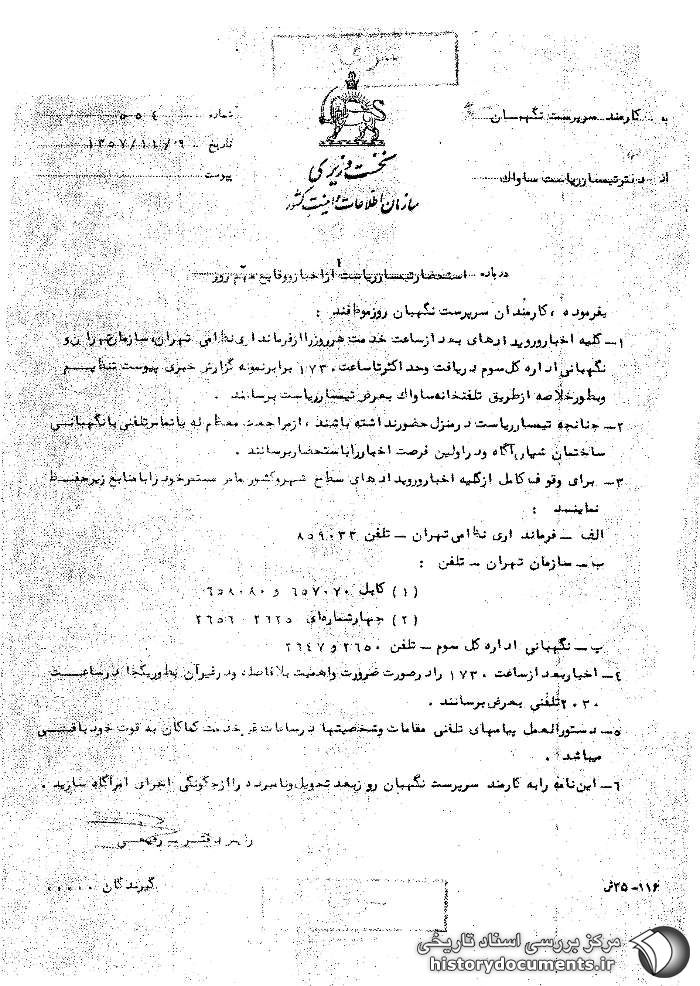 سری
به کارمند سرپرست نگهبان
شماره ۵۵۴
از دفتر تیمسار ریاست ساواک
تاریخ ۱۳۵۷/۱۱/۰۹
پیوست
نخست وزیری
سازمان اطلاعات و امنیت کشور
درباره استحضار تیمسار ریاست از اخبار و وقایع مهم روز
بفرموده ، کارمندان سرپرست نگهبان روز موظفند :
۱- کلیه اخبار و رویدادهای بعد از ساعت خدمت هر روز را از فرمانداری نظامی تهران، سازمان تهران و
نگهبانی اداره کل سوم دریافت و حداکثر تا ساعت ۱۷۳۰ برابر نمونه گزارش خبری پیوست تنظیم
و بطور خلاصه از طریق تلفنخانه ساواک بعرض تیمسار ریاست برسانند .
۲- چنانچه تیمسار ریاست در منزل حضور نداشته باشند ، از مراجعت معظم له با تماس تلفنی با نگهبانی
ساختمان شیان آگاه و در اولین فرصت اخبار را باستحضار برسانند .
۳- برای وقوف کامل از کلیه اخبار و رویدادهای سطح شهر و کشور تماس مستمر خود را با منابع زیر حفظ
نمایند :
الف - فرمانداری نظامی تهران - تلفن ۸۵۹۰۳۳
ب - سازمان تهران - تلفن :
(۱) کابل ۶۵۷۰۷۰ و ۶۵۸۰۸۰
(۲) چهارشماره‌ای ۲۶۲۵ - ۲۶۵۶
پ - نگهبانی اداره کل سوم - تلفن ۲۶۵۰ و ۲۶۴۷
۴- اخبار بعد از ساعت ۱۷۳۰ را در صورت ضرورت و اهمیت بلافاصله و در غیر آن بطور یکجا در ساعت
۲۰۳۰ تلفنی بعرض برسانند .
۵- دستورالعمل پیامهای تلفنی مقامات و شخصیتها در ساعات غیر خدمت کماکان به قوت خود باقی
میباشد .
۶- این نامه را به کارمند سرپرست نگهبان روز بعد تحویل و نامبرده را از چگونگی اجرای امر آگاه سازید .
گیرندگان .....
۱۱۶-۳۵ش
مرکز بررسی اسناد تاریخی
historydocuments.ir